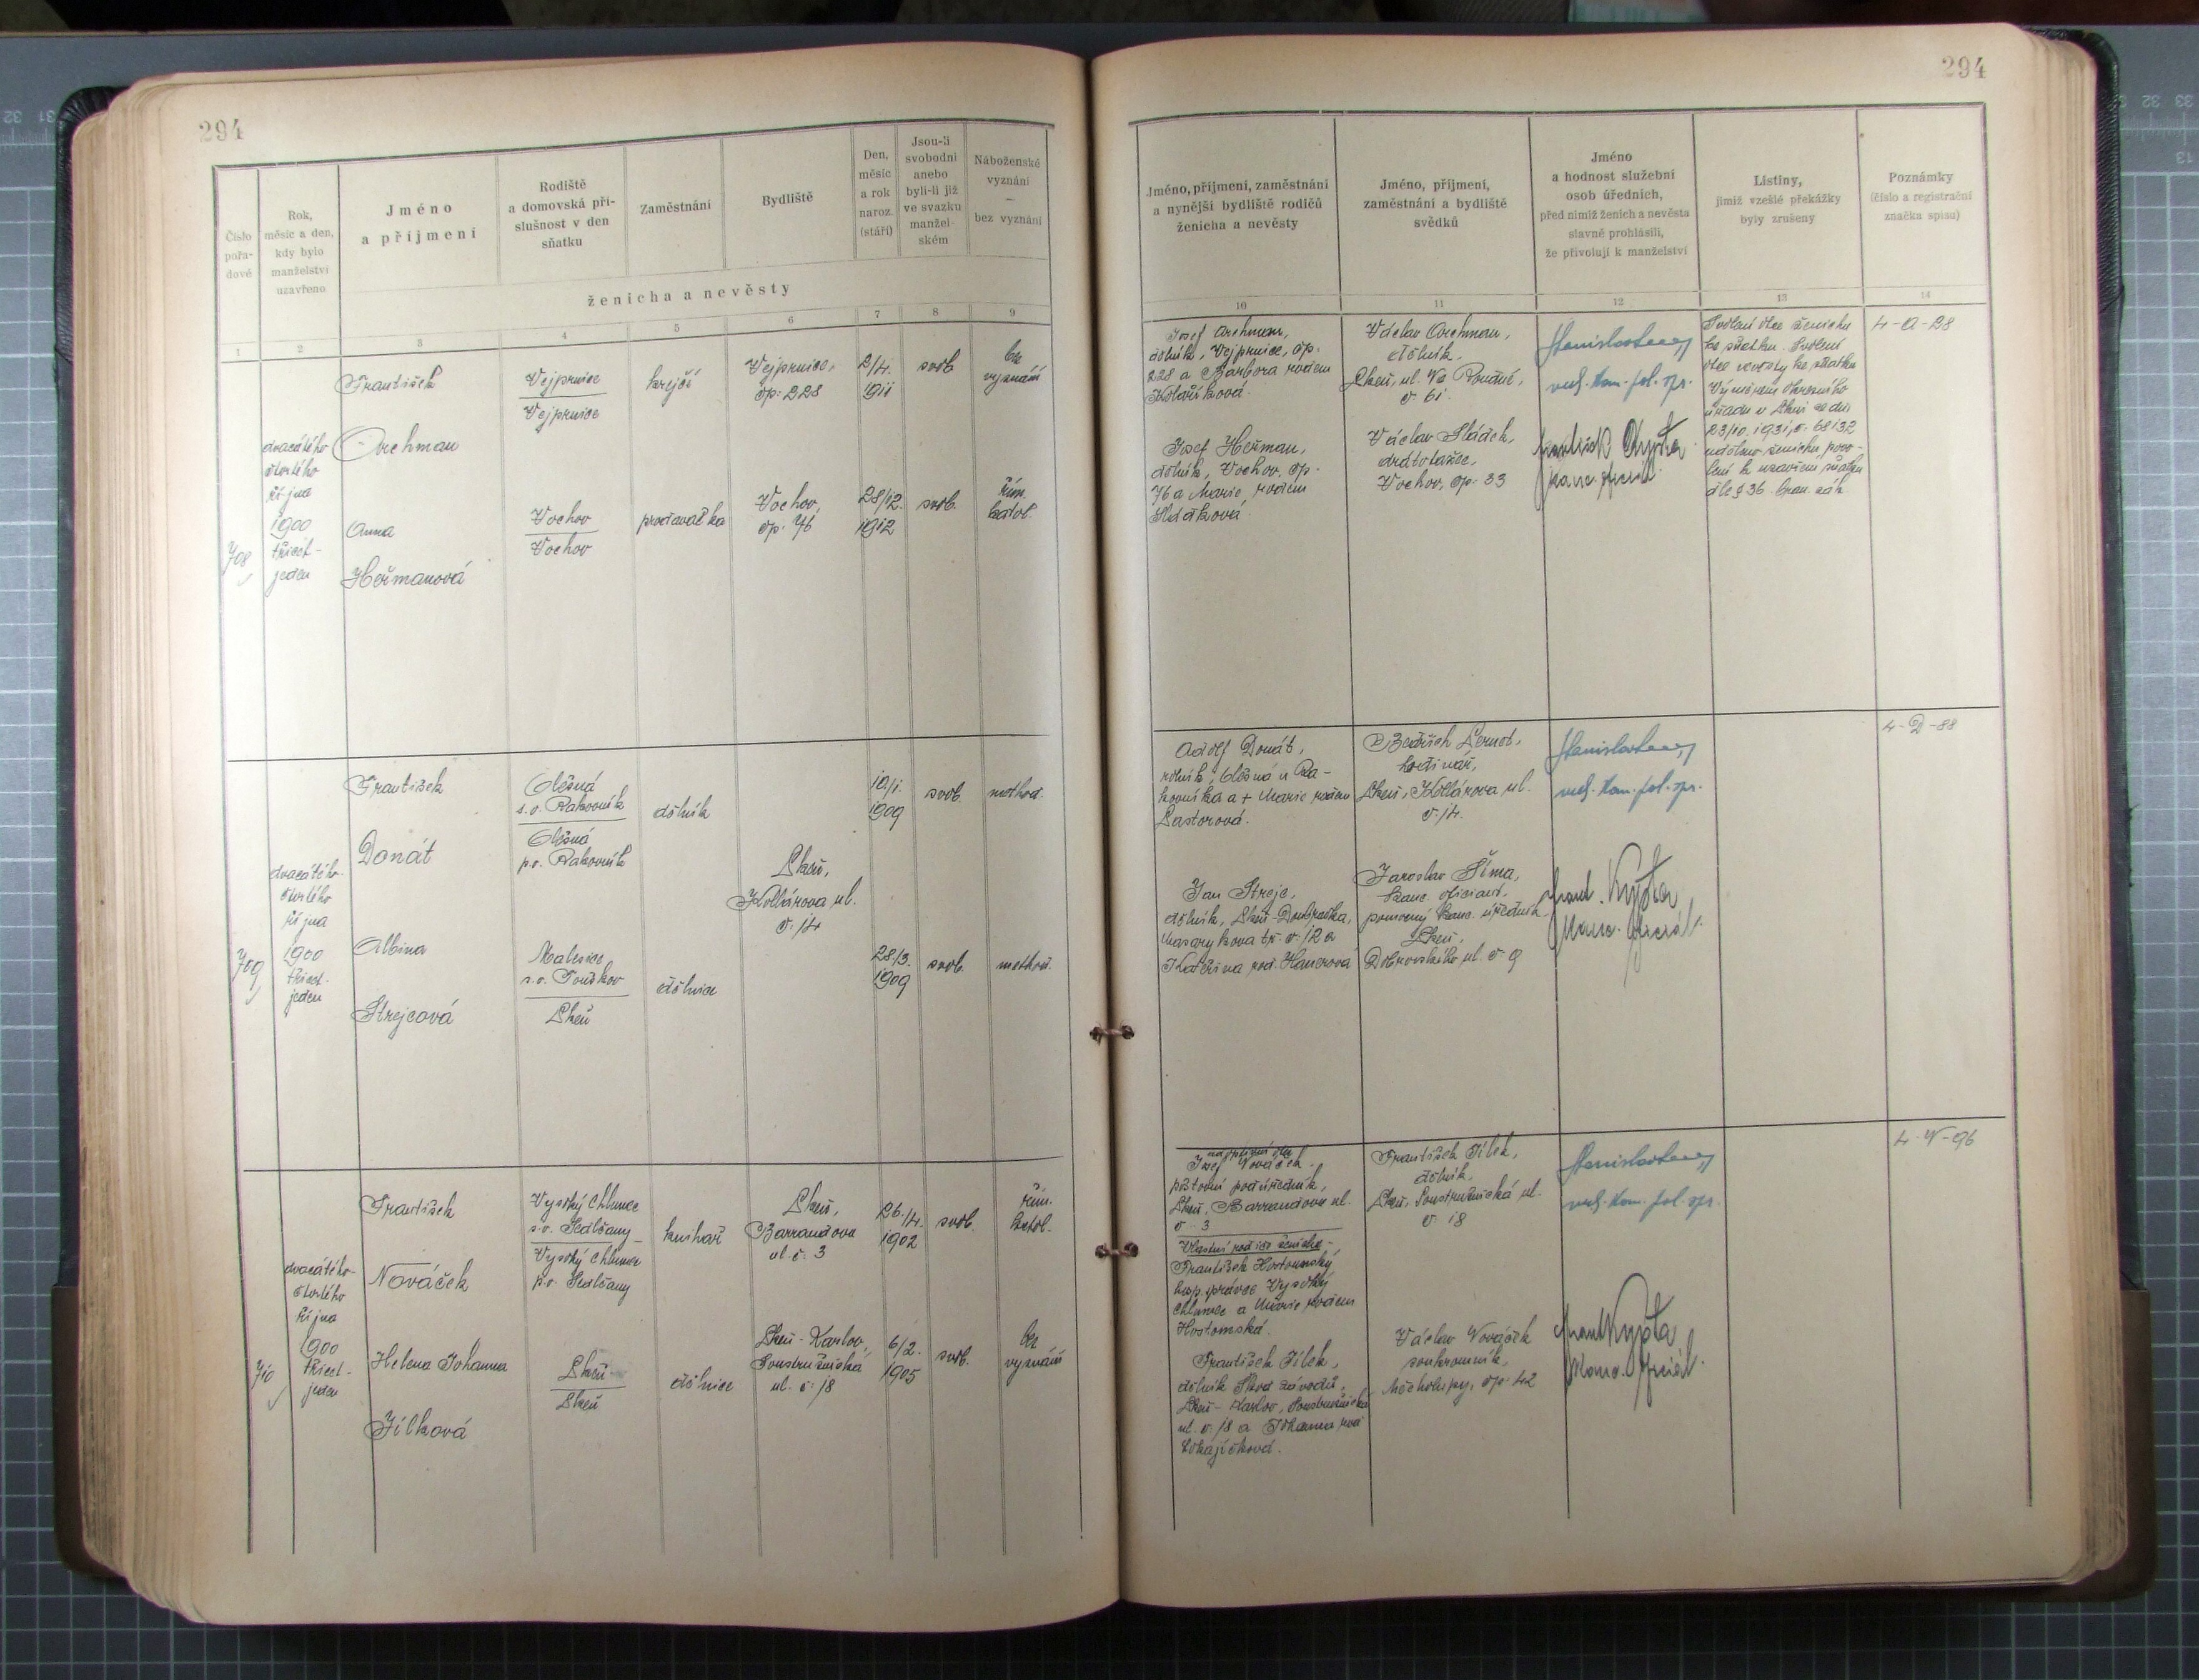 294
Číslo pořadové
Rok, měsíc a den, kdy bylo manželství uzavřeno
Jméno a příjmení
Rodiště a domovská příslušnost v den sňatku
Zaměstnání
Bydliště
Den, měsíc a rok naroz. (stáří)
Jsou-li svobodni anebo byli-li již ve svazku manželském
Náboženské vyznání – bez vyznání
ženicha a nevěsty
1 2 3 4 5 6 7 8 9
708
dvacátého
čtvrtého
října
1900
třicet-
jeden
František
Orchman
Vejprnice
Vejprnice
krejčí
Vejprnice,
čp. 228
2/4.
1911
svob.
bez
vyznání
Anna
Heřmanová
Vochov
Vochov
prodavačka
Vochov,
čp. 76
28/12.
1912
svob.
řím.
katol.
709
dvacátého-
čtvrtého
října
1900
třicet-
jeden
František
Donát
Olešná
s.o. Rakovník
Olešná
p.o. Rakovník
dělník
Plzeň,
Kollárova ul.
č. 14
19/1.
1909
svob.
method.
Albina
Strejcová
Malesice
s.o. Touškov
Plzeň
dělnice
28/3.
1909
svob.
method.
710
dvacátého-
čtvrtého
října
1900
třicet-
jeden
František
Nováček
Vysoký Chlumec
s.o. Sedlčany
Vysoký Chlumec
p.o. Sedlčany
knihař
Plzeň,
Barrandova
ul. č. 3
26./4.
1902
svob.
řím.
katol.
Helena Johanna
Jílková
Plzeň
Plzeň
dělnice
Plzeň-Karlov,
Soustružnická
ul. č. 18
6/2.
1905
svob.
bez
vyznání
294
Jméno, příjmení, zaměstnání a nynější bydliště rodičů ženicha a nevěsty
Jméno, příjmení, zaměstnání a bydliště svědků
Jméno a hodnost služební osob úředních, před nimiž ženich a nevěsta slavně prohlásili, že přivolují k manželství
Listiny, jimiž vzešlé překážky byly zrušeny
Poznámky (číslo a registrační značka spisu)
10 11 12 13 14
Josef Orchman,
dělník, Vejprnice, čp.
228 a Barbora rodem
Kolaříková.
Josef Heřman,
dělník, Vochov, čp.
76 a Marie, rodem
Sládková
Václav Orchman,
dělník,
Plzeň, ul. Na Roudné,
č. 61.
Václav Sládek,
drátotažec,
Vochov, čp. 33
František Kypta
kanc. oficiál
Svolení otce ženicha
ke sňatku. Svolení
otce nevěsty ke sňatku
Výměrem Okresního
úřadu v Plzni ze dne
23/10. 1931, č. 68132
uděleno ženichu povo-
lení k uzavření sňatku
dle § 36 bran. zák.
4-O-28
Adolf Donát,
rolník, Olešná u Ra-
kovníka a + Marie rodem
Pastorová.
Jan Strejc,
dělník, Plzeň-Doubravka,
Masarykova tř. č. 12 a
Kateřina rod. Hanerová
Bedřich Pernot,
hodinář,
Plzeň, Kollárova ul.
č. 14.
Jaroslav Šíma,
kanc. oficiant,
pomocný kanc. úředník
Plzeň,
Dobrovského ul. č. 9
Frant. Kypta
kanc. oficiál.
4-D-88
Josef Nováček
poštovní podúředník,
Plzeň, Barrandova ul.
č. 3
Vlastní rodiče ženicha-
František Hostomský
hosp. správce Vysoký
Chlumec a Marie rodem
Hostomská.
František Jílek,
dělník Škod. závodů,
Plzeň-Karlov, Soustružnická
ul. č. 18 a Johanna rod.
Lokajíčková.
František Jílek,
dělník,
Plzeň, Soustružnická ul.
č. 18
Václav Nováček
soukromník,
Měcholupy, čp. 42
Frant Kypta
kanc. oficiál.
4-N-96